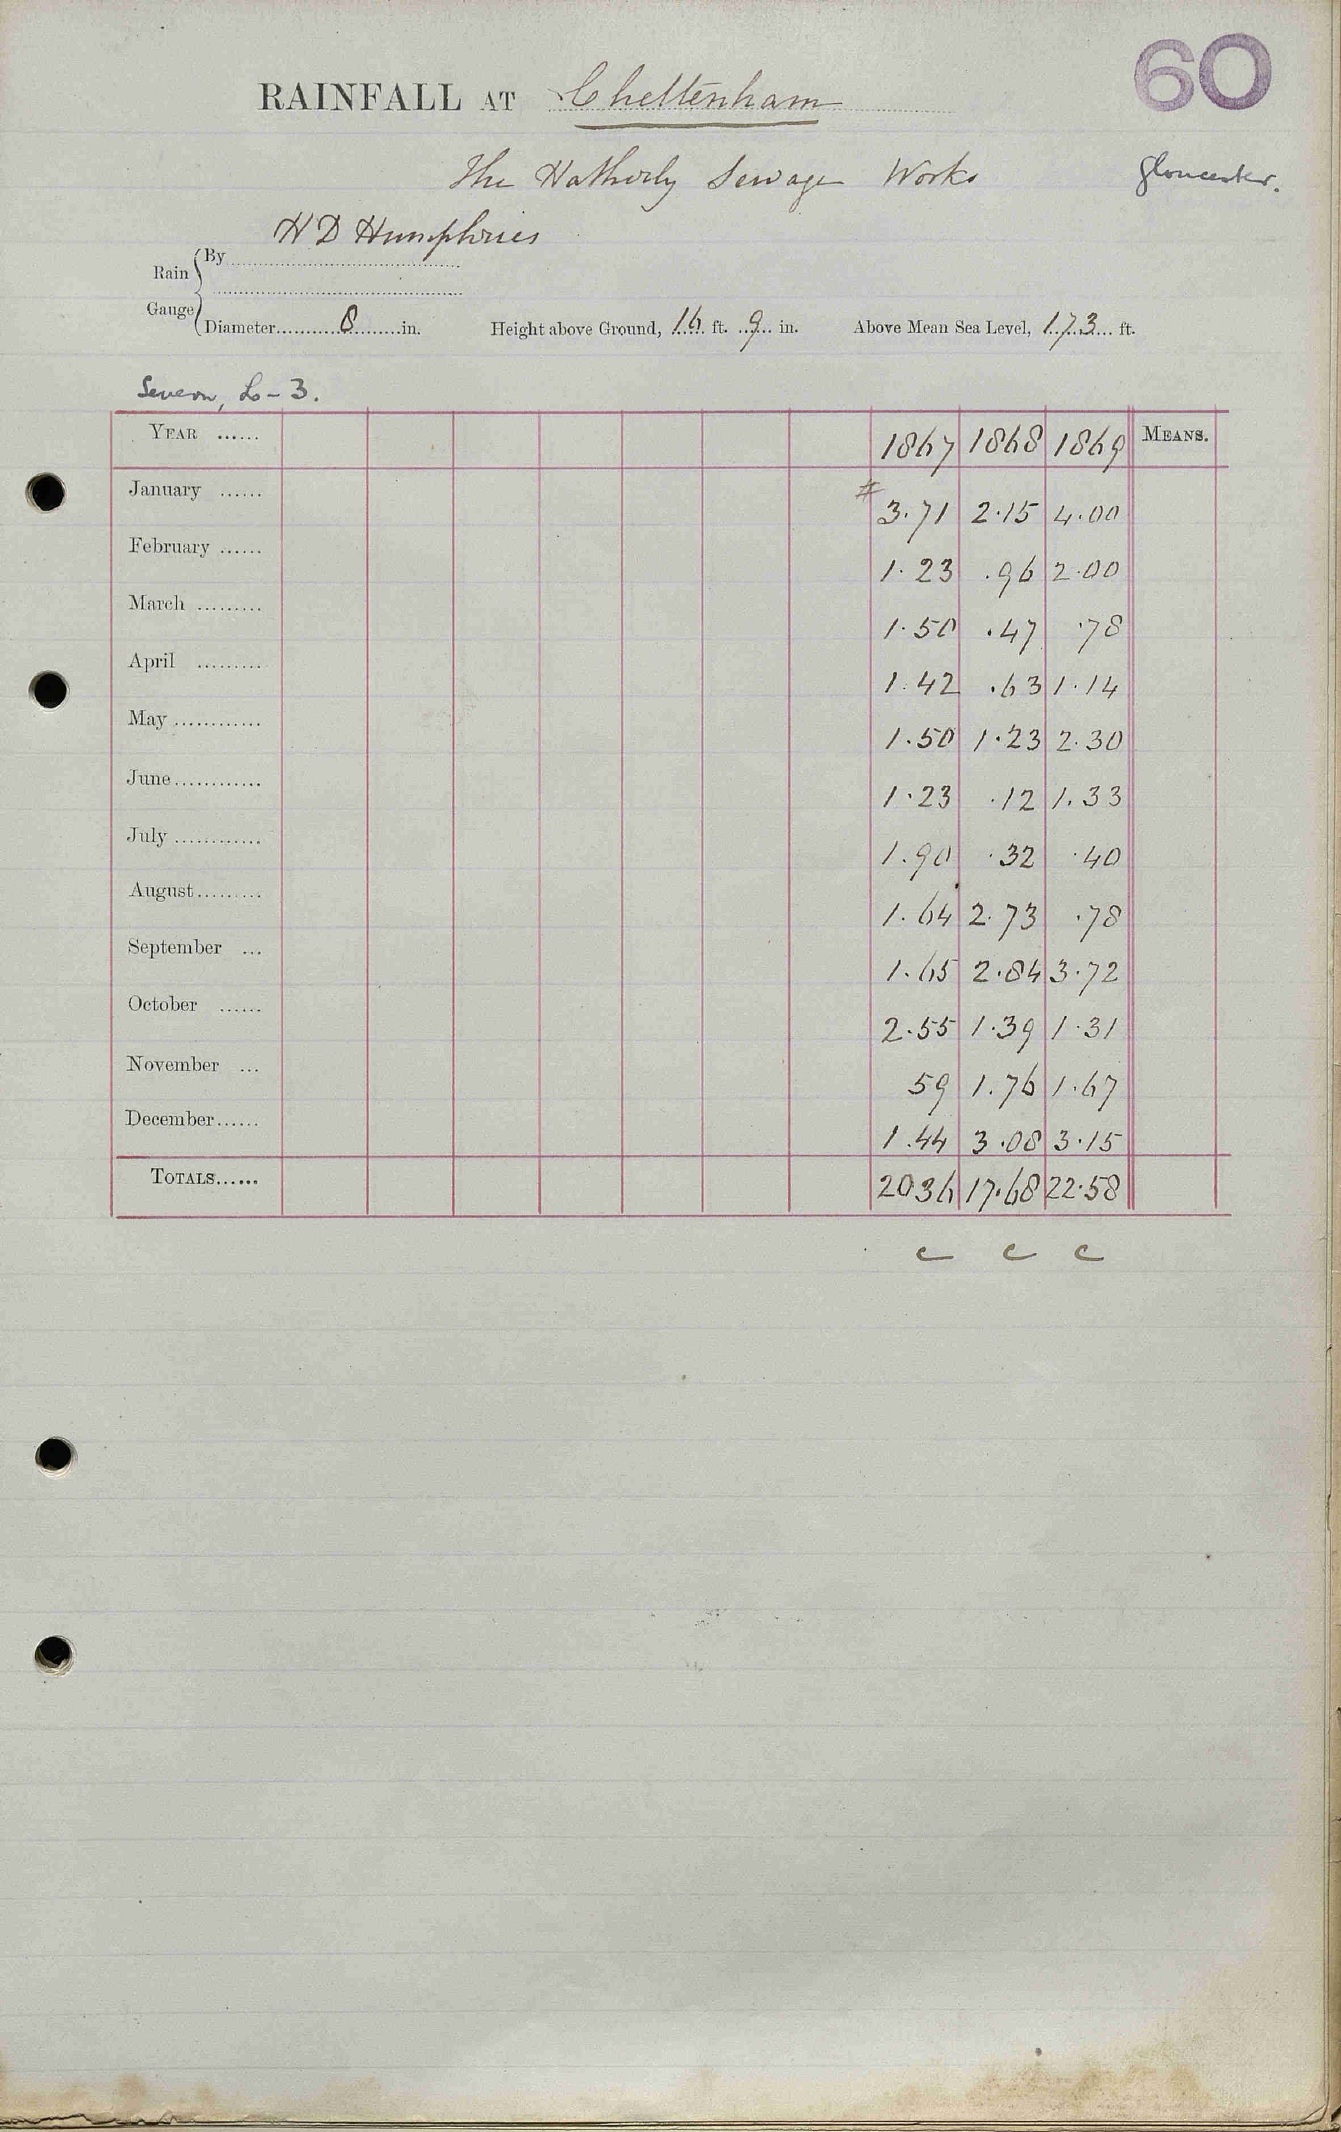 60
RAINFALL AT Cheltenham
The Hatherly Sewage Works
Gloucester.
H D Humphries
Rain Gauge By
Diameter 8 in. Height above Ground, 16 ft. 9 in. Above Mean Sea Level, 173 ft.
Severn, L-3.
YEAR ...... 1867 1868 1869 MEANS.
January ...... # 3.71 2.15 4.00
February ...... 1.23 .96 2.00
March ......... 1.50 .47 .78
April ......... 1.42 .63 1.14
May ............ 1.50 1.23 2.30
June ............ 1.23 .12 1.33
July ............ 1.90 .32 .40
August ......... 1.64 2.73 .78
September ... 1.65 2.84 3.72
October ...... 2.55 1.39 1.31
November ... 59 1.76 1.67
December ...... 1.44 3.08 3.15
TOTALS ...... 2036 17.68 22.58
c c c